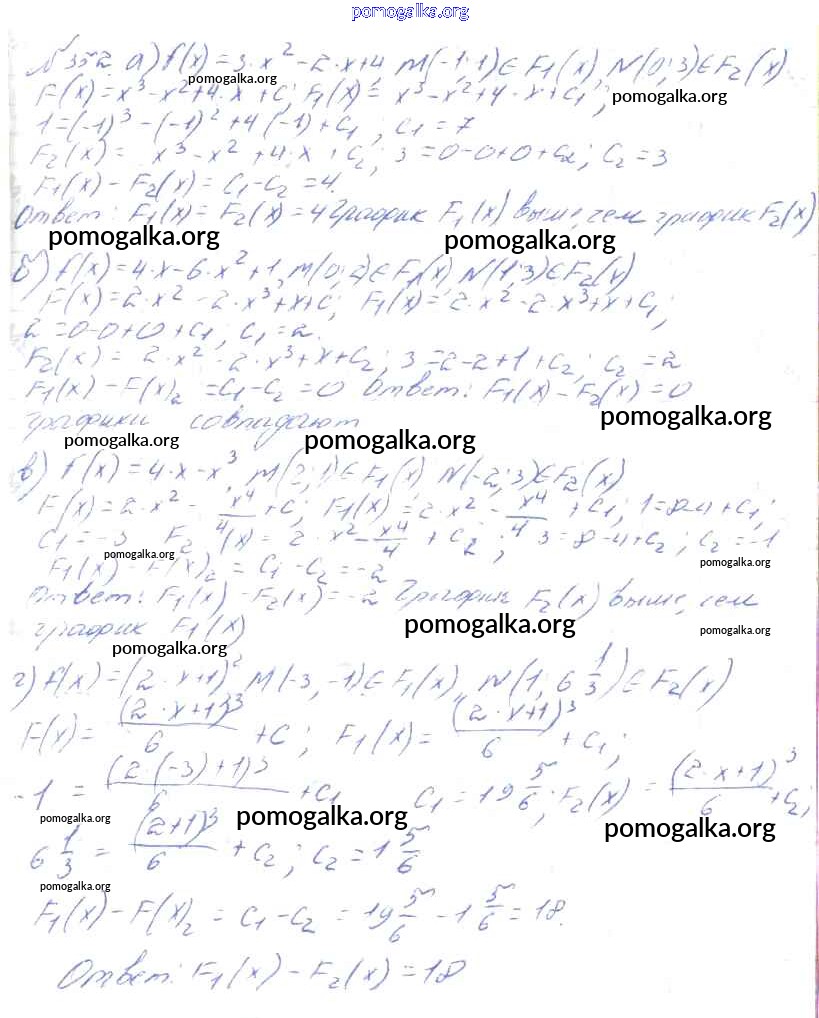 pomogalka.org
№ 352 а) f(x) = 3·x² - 2·x+4, M(-1; 1) ∈ F₁(x), N(0; 3) ∈ F₂(x).
pomogalka.org
F(x) = x³ - x² + 4·x + C; F₁(x) = x³ - x² + 4·x + C₁;
pomogalka.org
1 = (-1)³ - (-1)² + 4(-1) + C₁; C₁ = 7
F₂(x) = x³ - x² + 4·x + C₂; 3 = 0-0+0+C₂; C₂ = 3
F₁(x) - F₂(x) = C₁ - C₂ = 4.
Ответ: F₁(x) = F₂(x) = 4 График F₁(x) выше, чем график F₂(x)
pomogalka.org pomogalka.org
б) f(x) = 4·x - 6·x² + 1, M(0; 2) ∈ F₁(x) N(1; 3) ∈ F₂(x)
F(x) = 2·x² - 2·x³ + x + C; F₁(x) = 2·x² - 2·x³ + x + C₁;
2 = 0-0+0+C₁; C₁ = 2.
F₂(x) = 2·x² - 2·x³ + x + C₂; 3 = 2-2+1+C₂; C₂ = 2
F₁(x) - F(x)₂ = C₁ - C₂ = 0 Ответ: F₁(x) - F₂(x) = 0
pomogalka.org
графики совпадают
pomogalka.org pomogalka.org
в) f(x) = 4·x - x³, M(2; 1) ∈ F₁(x) N(-2; 3) ∈ F₂(x)
F(x) = 2·x² - x⁴/4 + C; F₁(x) = 2·x² - x⁴/4 + C₁; 1 = 8-4+C₁;
C₁ = -3 F₂(x) = 2·x² - x⁴/4 + C₂; 3 = 8-4+C₂; C₂ = -1
pomogalka.org pomogalka.org
F₁(x) - F(x)₂ = C₁ - C₂ = -2
Ответ: F₁(x) - F₂(x) = -2 График F₂(x) выше, чем
pomogalka.org pomogalka.org
график F₁(x)
pomogalka.org
г) f(x) = (2·x+1)² M(-3, -1) ∈ F₁(x), N(1; 6 1/3) ∈ F₂(x)
F(x) = (2·x+1)³/6 + C; F₁(x) = (2·x+1)³/6 + C₁;
-1 = (2·(-3)+1)³/6 + C₁ C₁ = 19 5/6; F₂(x) = (2·x+1)³/6 + C₂;
pomogalka.org pomogalka.org pomogalka.org
6 1/3 = (2+1)³/6 + C₂; C₂ = 1 5/6
pomogalka.org
F₁(x) - F(x)₂ = C₁ - C₂ = 19 5/6 - 1 5/6 = 18.
Ответ: F₁(x) - F₂(x) = 18